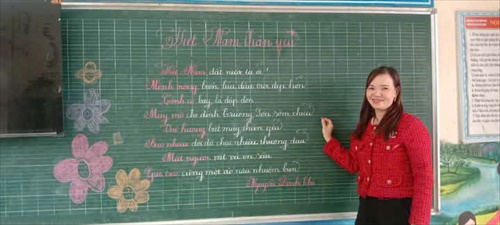 Việt Nam thân yêu
Việt Nam đất nước ta ơi
Mênh mông biển lúa đâu trời đẹp hơn
Cánh cò bay lả dập dờn
Mây mờ che đỉnh Trường Sơn sớm chiều
Quê hương biết mấy thân yêu
Bao nhiêu đời đã chịu nhiều thương đau
Mặt người vất vả in sâu
Gái trai cũng một áo nâu nhuộm bùn
Nguyễn Đình Thi